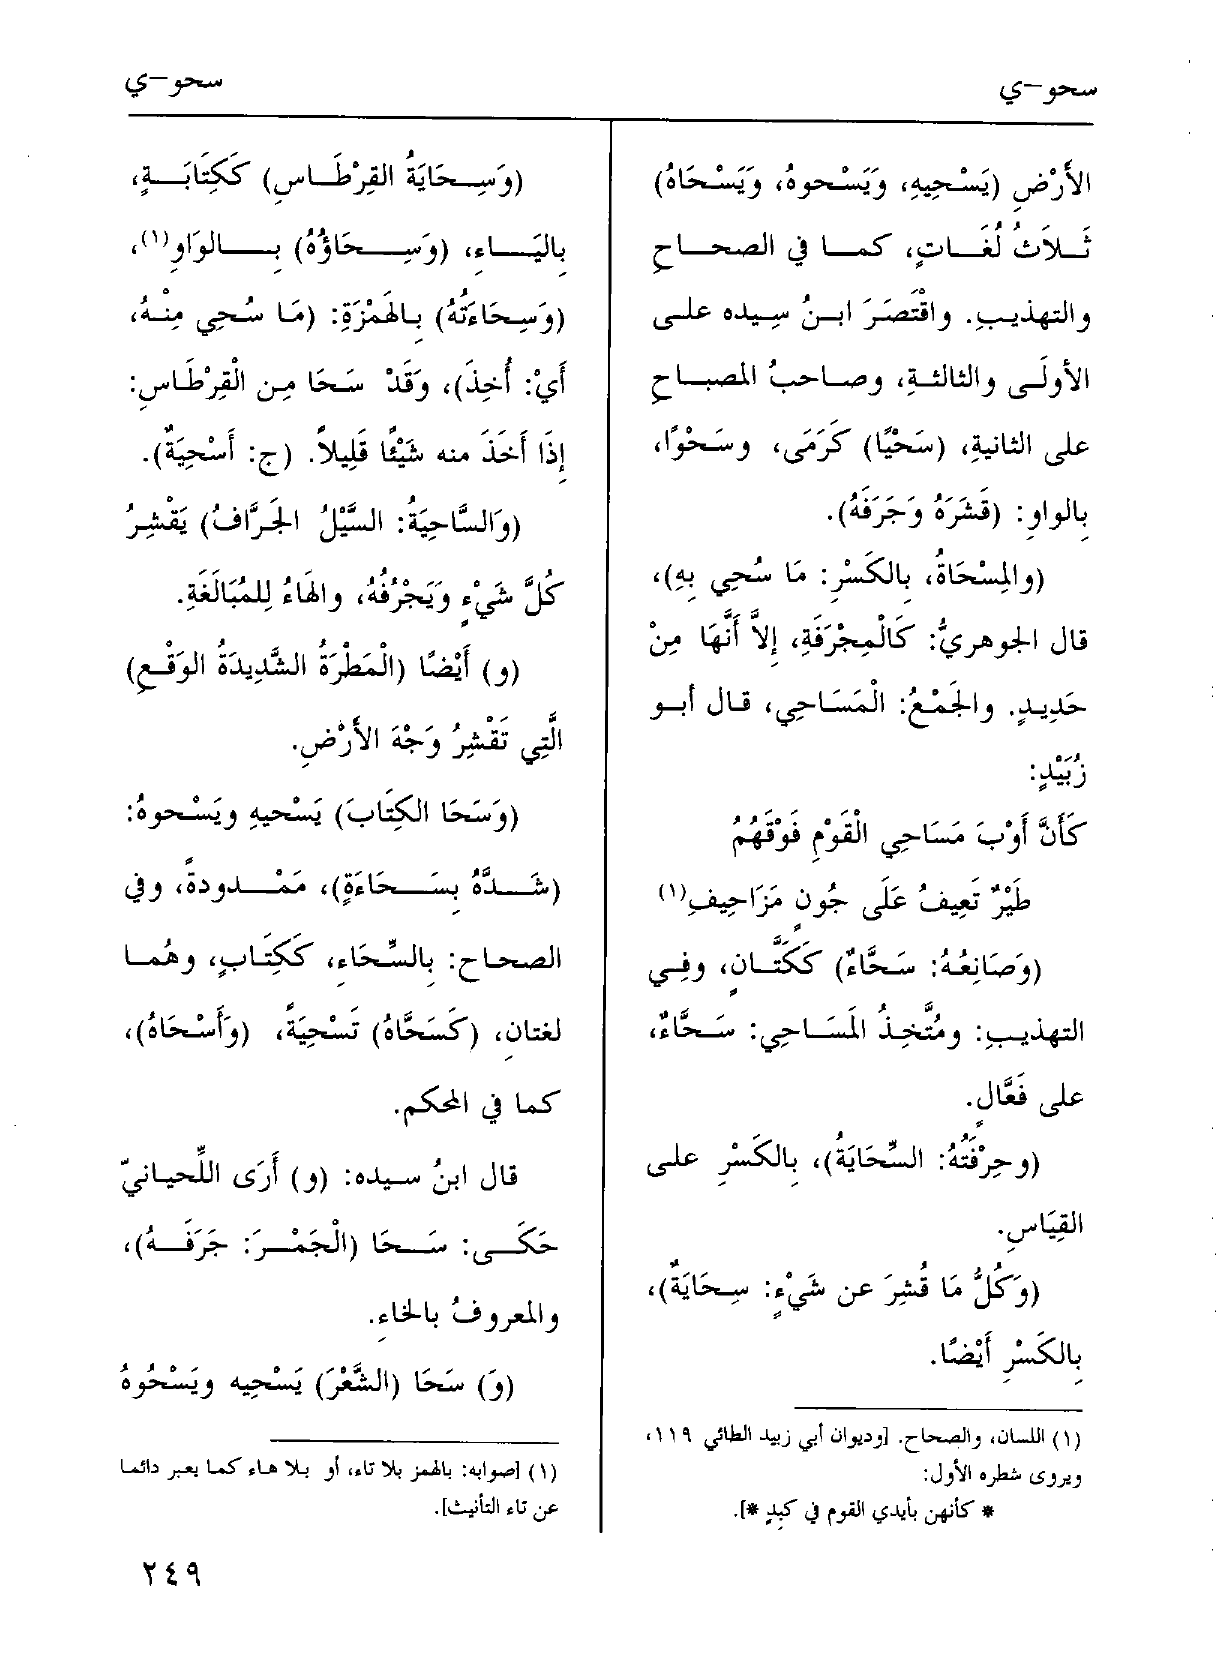 سحو-ي
سحو-ي
الأَرْضِ (يَسْحِيهِ، وَيَسْحوهُ، وَيَسْحَاهُ)
ثَلَاثُ لُغَاتٍ، كما في الصحاح
والتهذيبِ. واقْتَصَرَ ابنُ سِيده على
الأولَى والثالثةِ، وصاحبُ المصباح
على الثانيةِ، (سَحْيًا) كَرَمَى، وسَحْوًا،
بالواوِ: (قَشَرَهُ وَجَرَفَهُ).
(والمِسْحَاةُ، بِالكَسْرِ: مَا سُحِي بِهِ)،
قال الجوهريُّ: كَالْمِجْرَفَةِ، إلاَّ أَنَّهَا مِنْ
حَدِيدٍ. والجَمْعُ: الْمَسَاحِي، قال أبو
زُبَيْدٍ:
كَأَنَّ أَوْبَ مَسَاحِي الْقَوْمِ فَوْقَهُمُ
طَيْرٌ تَعِيفُ عَلَى جُونٍ مَزَاحِيفِ(١)
(وَصَانِعُهُ: سَحَّاءٌ) كَكَتَّانٍ، وفِي
التهذيبِ: ومُتَّخِذُ المَسَاحِي: سَحَّاءٌ،
على فَعَّالٍ.
(وحِرْفَتُهُ: السِّحَايَةُ)، بِالكَسْرِ على
القِيَاسِ.
(وَكُلُّ مَا قُشِرَ عن شَيْءٍ: سِحَايَةٌ)،
بِالكَسْرِ أَيْضًا.
(١) اللسان، والصحاح. [وديوان أبي زبيد الطائي ١١٩،
ويروى شطره الأول:
* كأنهن بأيدي القوم في كَبِدٍ *].
(وَسِحَايَةُ القِرْطَاسِ) كَكِتَابَةٍ،
بِاليَاءِ، (وَسِحَاؤُهُ) بِالوَاوِ(١)،
(وَسِحَاءَتُهُ) بِالهَمْزَةِ: (مَا سُحِي مِنْهُ،
أَيْ: أُخِذَ)، وَقَدْ سَحَا مِن القِرْطَاسِ:
إِذَا أَخَذَ منه شَيْئًا قَلِيلاً. (ج: أَسْحِيَةٌ).
(وَالسَّاحِيَةُ: السَّيْلُ الجَرَّافُ) يَقْشِرُ
كُلَّ شَيْءٍ وَيَجْرُفُهُ، والهَاءُ لِلمُبَالَغَةِ.
(و) أَيْضًا (الْمَطْرَةُ الشَّدِيدَةُ الوَقْعِ)
الَّتِي تَقْشِرُ وَجْهَ الأَرْضِ.
(وَسَحَا الكِتَابَ) يَسْحيهِ ويَسْحوهُ:
(شَدَّهُ بِسَحَاءَةٍ)، مَمْدودةً، وفي
الصحاح: بِالسِّحَاءِ، كَكِتَابٍ، وهُما
لغتانِ، (كَسَحَّاهُ) تَسْحِيَةً، (وَأَسْحَاهُ)،
كما في المحكم.
قال ابنُ سيده: (و) أَرَى اللِّحيانيّ
حَكَى: سَحَا (الْجَمْرَ: جَرَفَهُ)،
والمعروفُ بالخاءِ.
(وَ) سَحَا (الشَّعْرَ) يَسْحِيه ويَسْحُوهُ
(١) [صوابه: بالهمز بلا تاء، أو بلا هاء كما يعبر دائما
عن تاء التأنيث].
٢٤٩